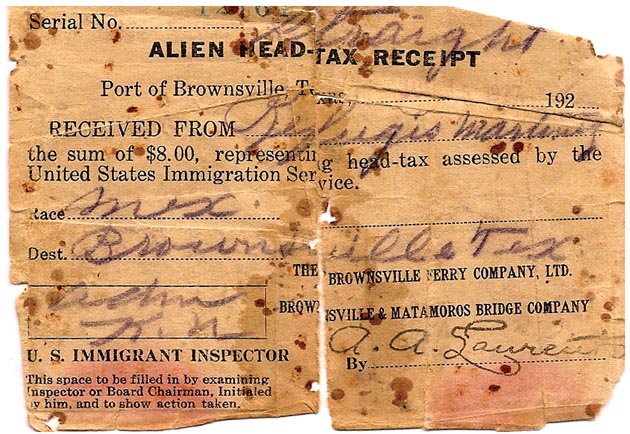 Serial No.
Straight
ALIEN HEAD-TAX RECEIPT
Port of Brownsville, Texas, 192
RECEIVED FROM Refugio Martinez
the sum of $8.00, representing head-tax assessed by the
United States Immigration Service.
Race Mex.
Dest. Brownsville Tex
THE BROWNSVILLE FERRY COMPANY, LTD.
BROWNSVILLE & MATAMOROS BRIDGE COMPANY
By A. A. Laurent
U. S. IMMIGRANT INSPECTOR
This space to be filled in by examining
Inspector or Board Chairman, Initialed
by him, and to show action taken.